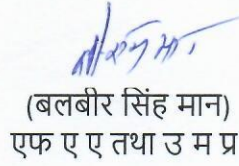 (बलबीर सिंह मान)
एफ ए ए तथा उ म प्र